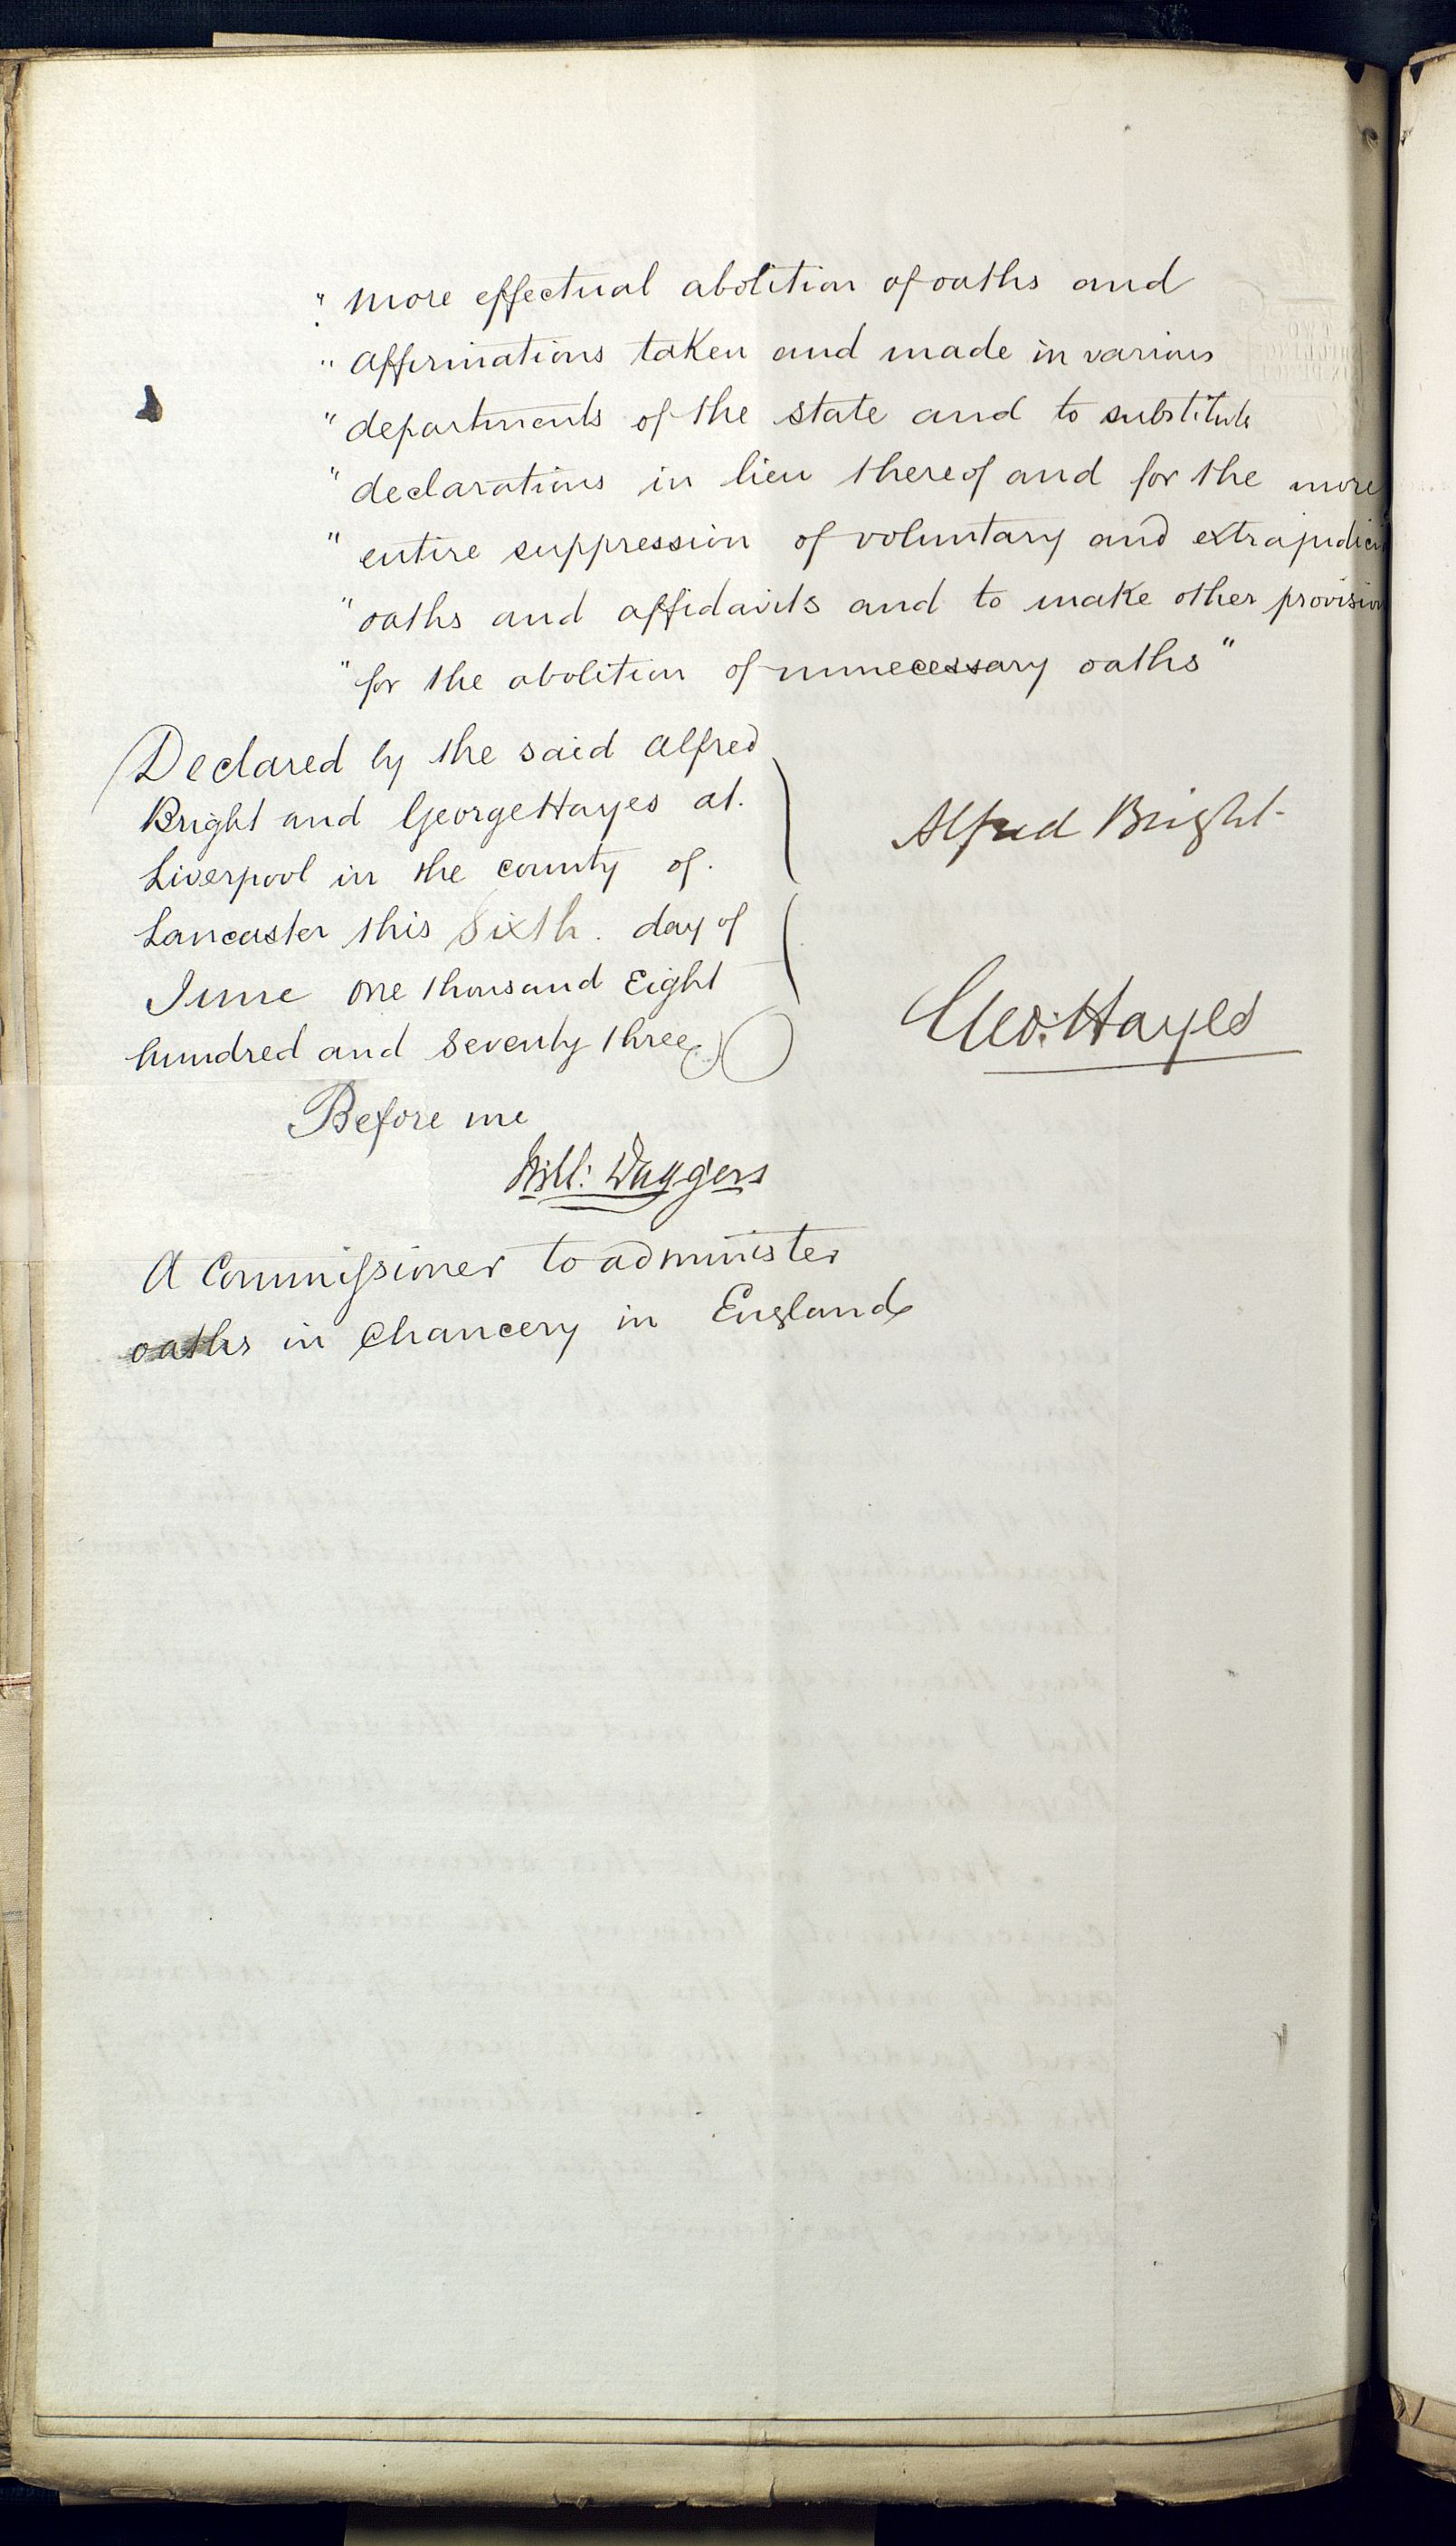 " more effectual abolition of oaths and
" affirmations taken and made in various
" departments of the state and to substitute
" declarations in lieu thereof and for the more
" entire suppression of voluntary and extrajudici
" oaths and affidavits and to make other provision
" for the abolition of unnecessary oaths "
Declared by the said Alfred
Bright and George Hayes at.
Liverpool in the county of.
Lancaster this Sixth. day of
June one thousand Eight
hundred and Seventy three
Alfred Bright
Geo: Hayes
Before me
Will: Daggers
A Commissioner to administer
oaths in Chancery in England